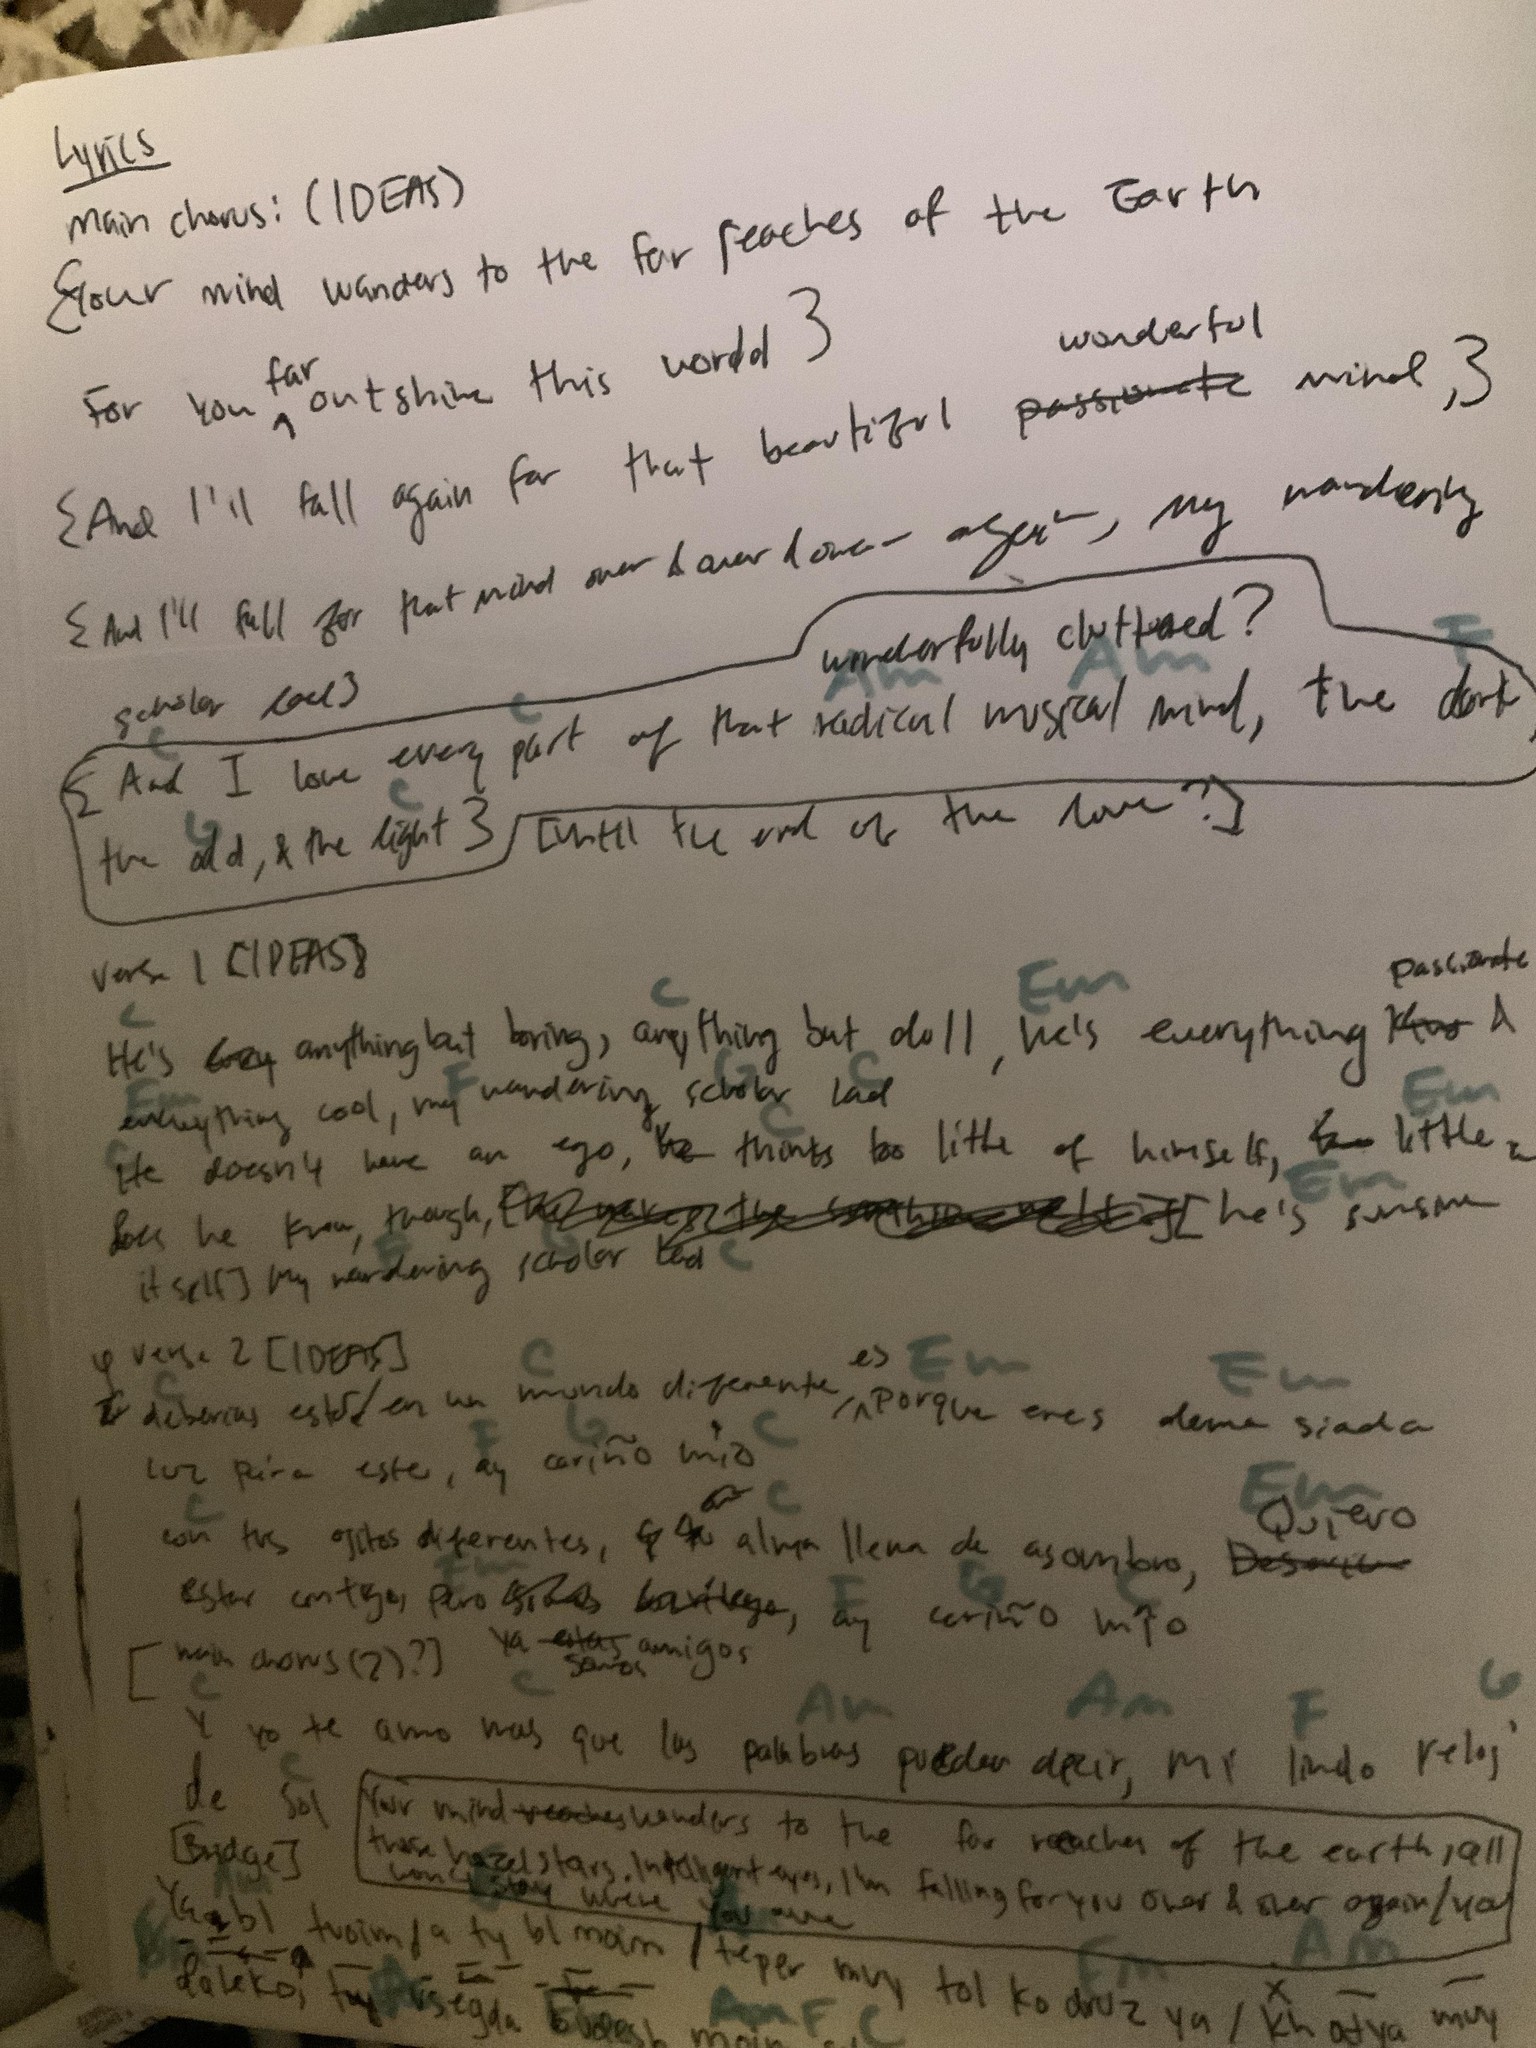 Lyrics
Main chorus: (IDEAS)
{Your mind wanders to the far reaches of the Earth
far
For you ^ outshine this world }
wonderful
{And I'll fall again for that beautiful passionate mind,}
{And I'll fall for that mind over & over & over again, my wandering
scholar lad}
wonderfully cluttered?
C C Am Am F
{And I love every part of that radical musical mind, the dark,
G C
the odd, & the light } [Until the end of the love?]
Verse 1 [IDEAS]
passionate
C C Em
He's anything but boring, anything but dull, he's everything &
Em F G C
everything cool, my wandering scholar lad
C C Em
He doesn't have an ego, he thinks too little of himself, little
Em
does he know, though, [he's
F G C
itself] my wandering scholar lad
Verse 2 [IDEAS]
es
C C Em Em
deberías en un mundo diferente, ^ porque eres demasiada
F G C
luz para este, ay cariño mío
Quiero
C C Em
con tus ojitos diferentes, alma llena de asombro,
Em F G C
estar contigo, pero ay cariño mío
[main chorus (2)?] ya estas amigos
somos
C C Am Am F G
Y yo te amo mas que las palabras pueden decir, mi lindo reloj
C
de sol
Your mind reaches wanders to the far reaches of the earth, all
[Bridge]
those hazel stars. Intelligent eyes, I'm falling for you over & over again/
stay where you are
Am
Ya bl tvoim/a ty bl moim / teper muy tol ko druz ya / khotya muy
Em Am
daleko, vsegda moim
Am F C